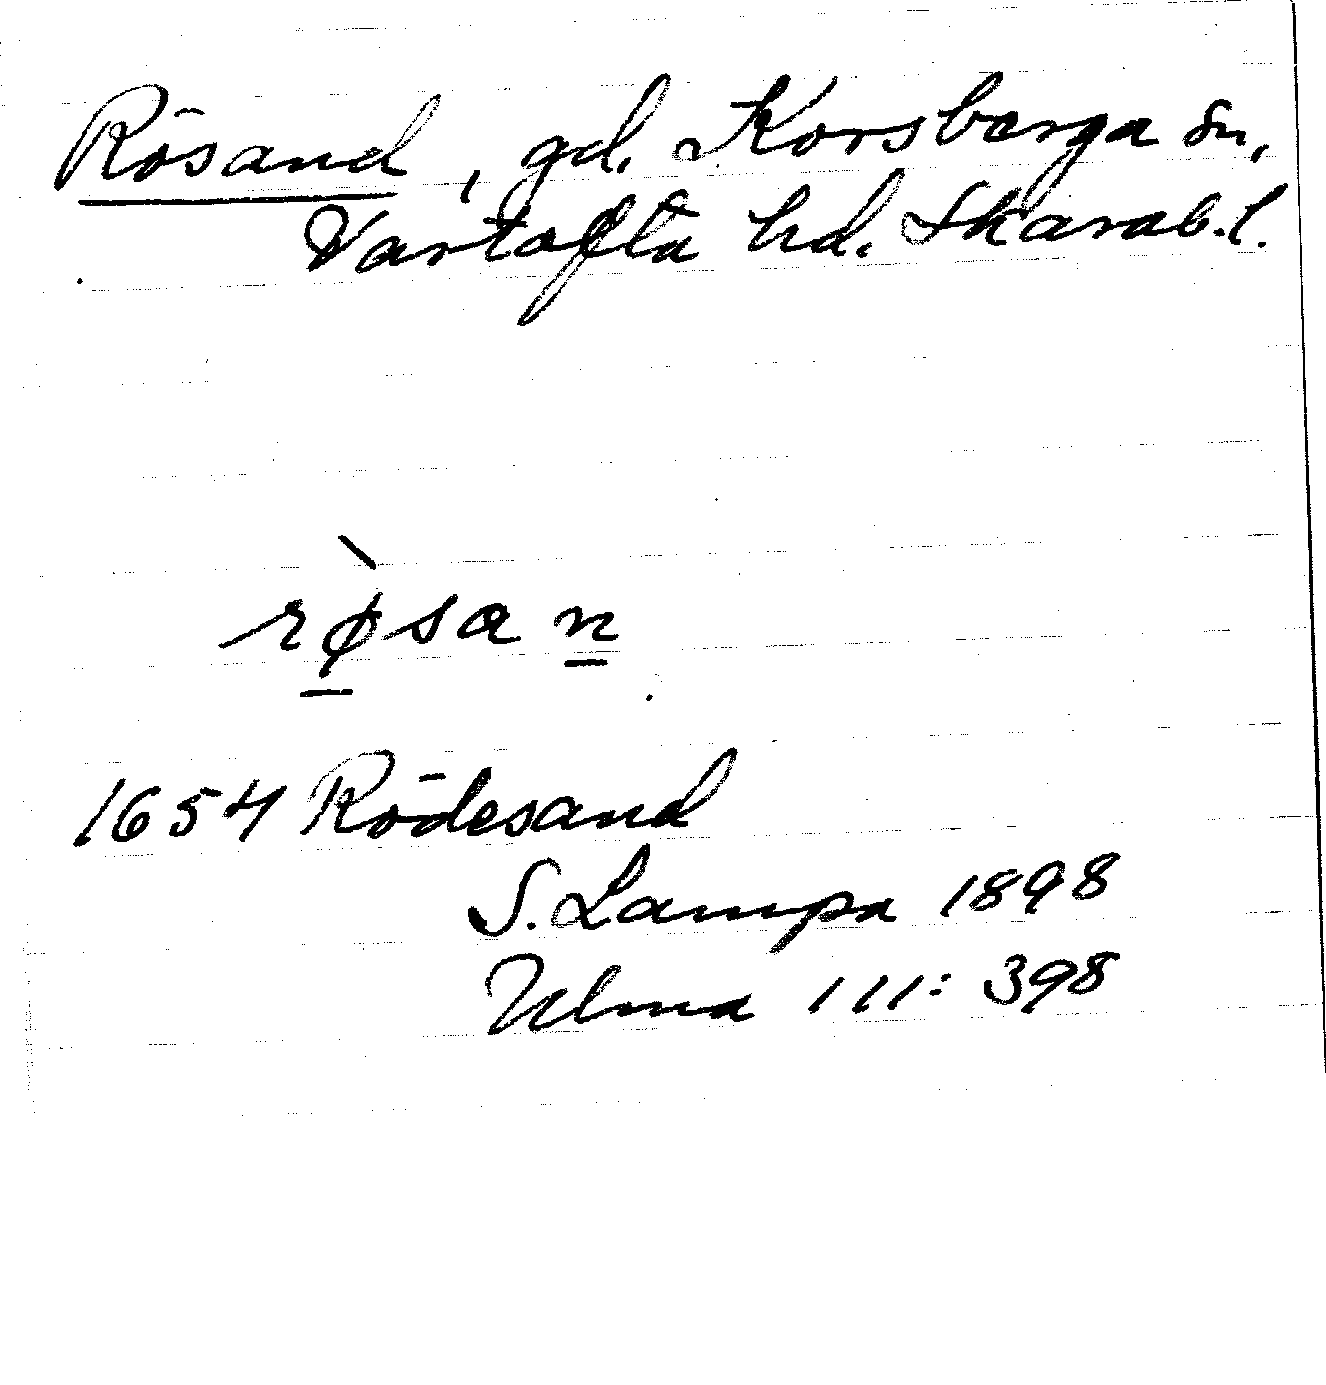 Rösand, gd. Korsberga sn,
Vartofta hd. Skarab.l.
rø̀san
1654 Rödesand
S. Lampa 1898
Ulma 111: 398